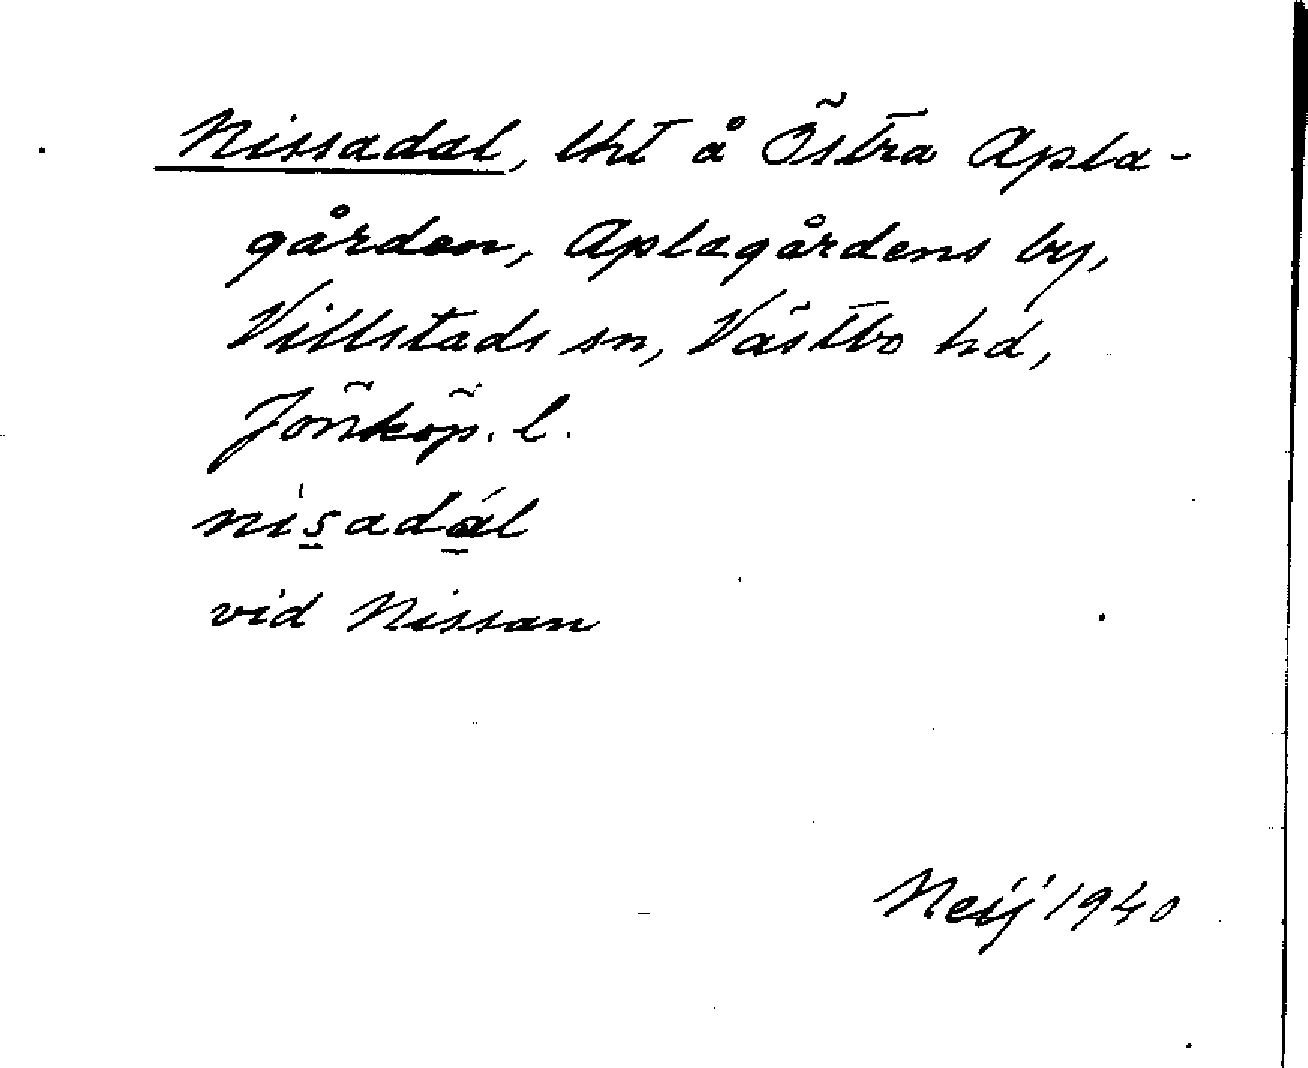 Nissadal, lht å Östra Apla-
gården, Aplagårdens by,
Villstads sn, Västbo hd,
Jönköp. l.
nis̲ada̲l
vid Nissan
Neij 1940